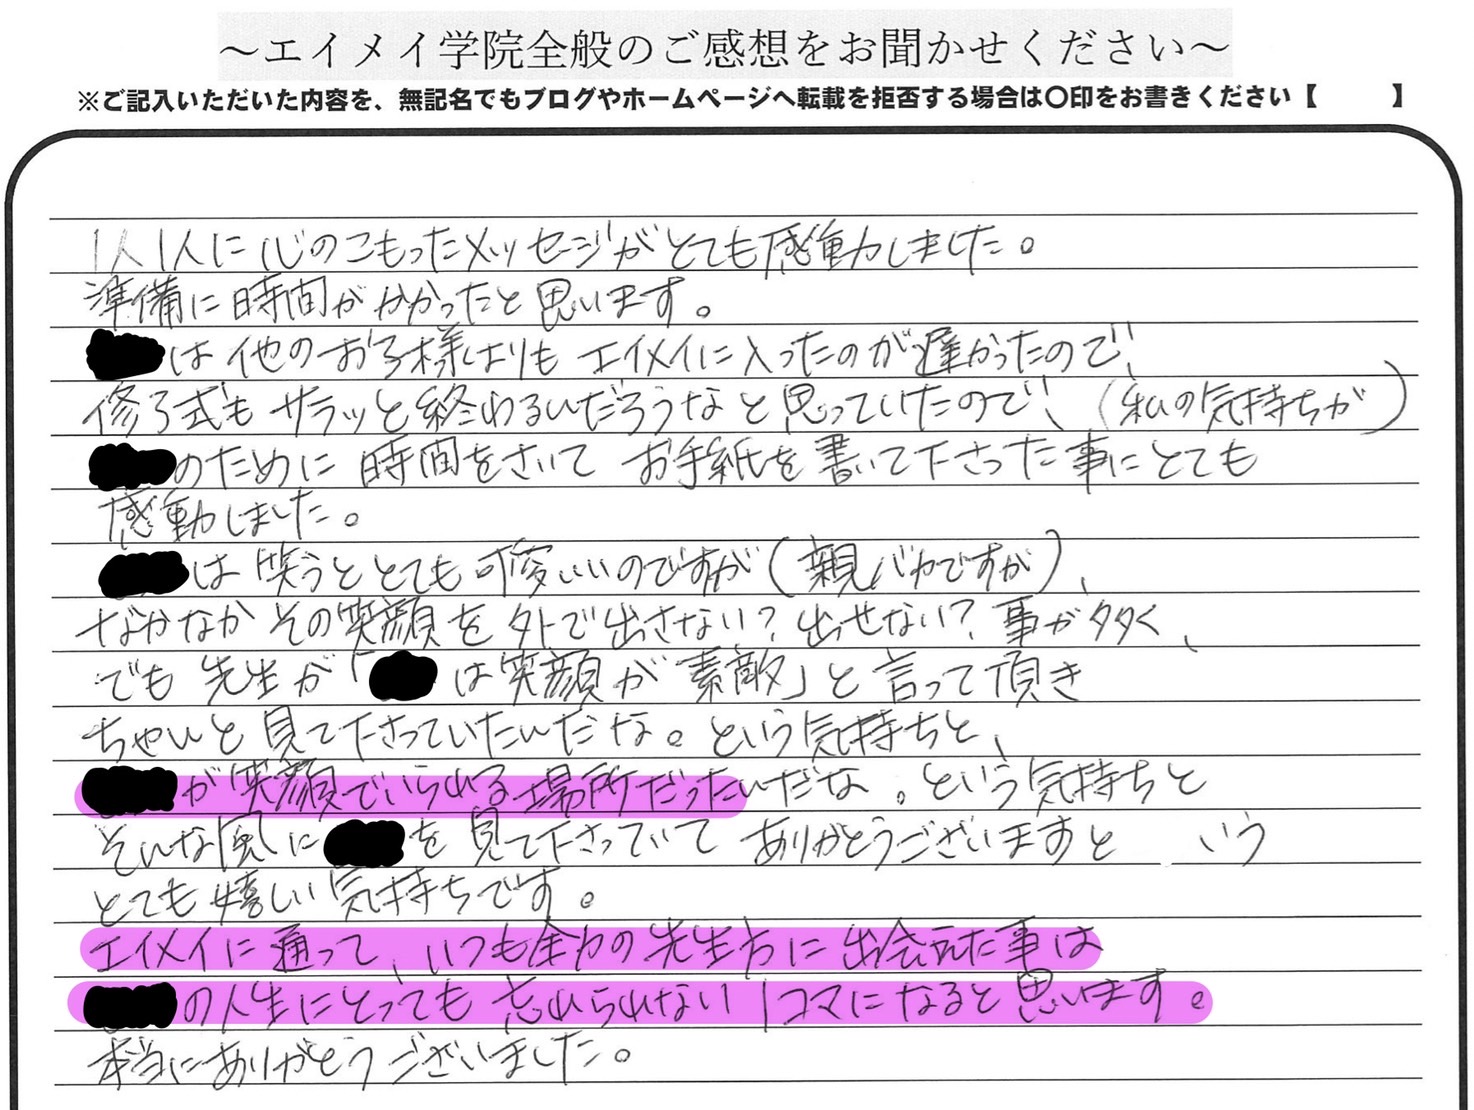 ～エイメイ学院全般のご感想をお聞かせください～
※ご記入いただいた内容を、無記名でもブログやホームページへ転載を拒否する場合は〇印をお書きください【　　】
1人1人に心のこもったメッセージがとても感動しました。
準備に時間がかかったと思います。
は他のお子様よりも エイメイに入ったのが遅かったので、
修了式も サラッと終わるんだろうなと思っていたので、(私の気持ちが)
のために 時間をさいて お手紙を書いて下さった事にとても
感動しました。
は笑うととても可愛いいのですが(親バカですが)、
なかなか その笑顔を外で出さない?出せない?事が多く、
でも 先生が「は笑顔が素敵」と言って頂き
ちゃんと見て下さっていたんだな。という気持ちと、
が笑顔でいられる場所だったんだな。という気持ちと
そんな風に を見て下さっていて ありがとうございますと いう
とても嬉しい気持ちです。
エイメイに通って、いつも全力の先生方に出会えた事は
の人生にとっても 忘れられない1コマになると思います。
本当にありがとうございました。